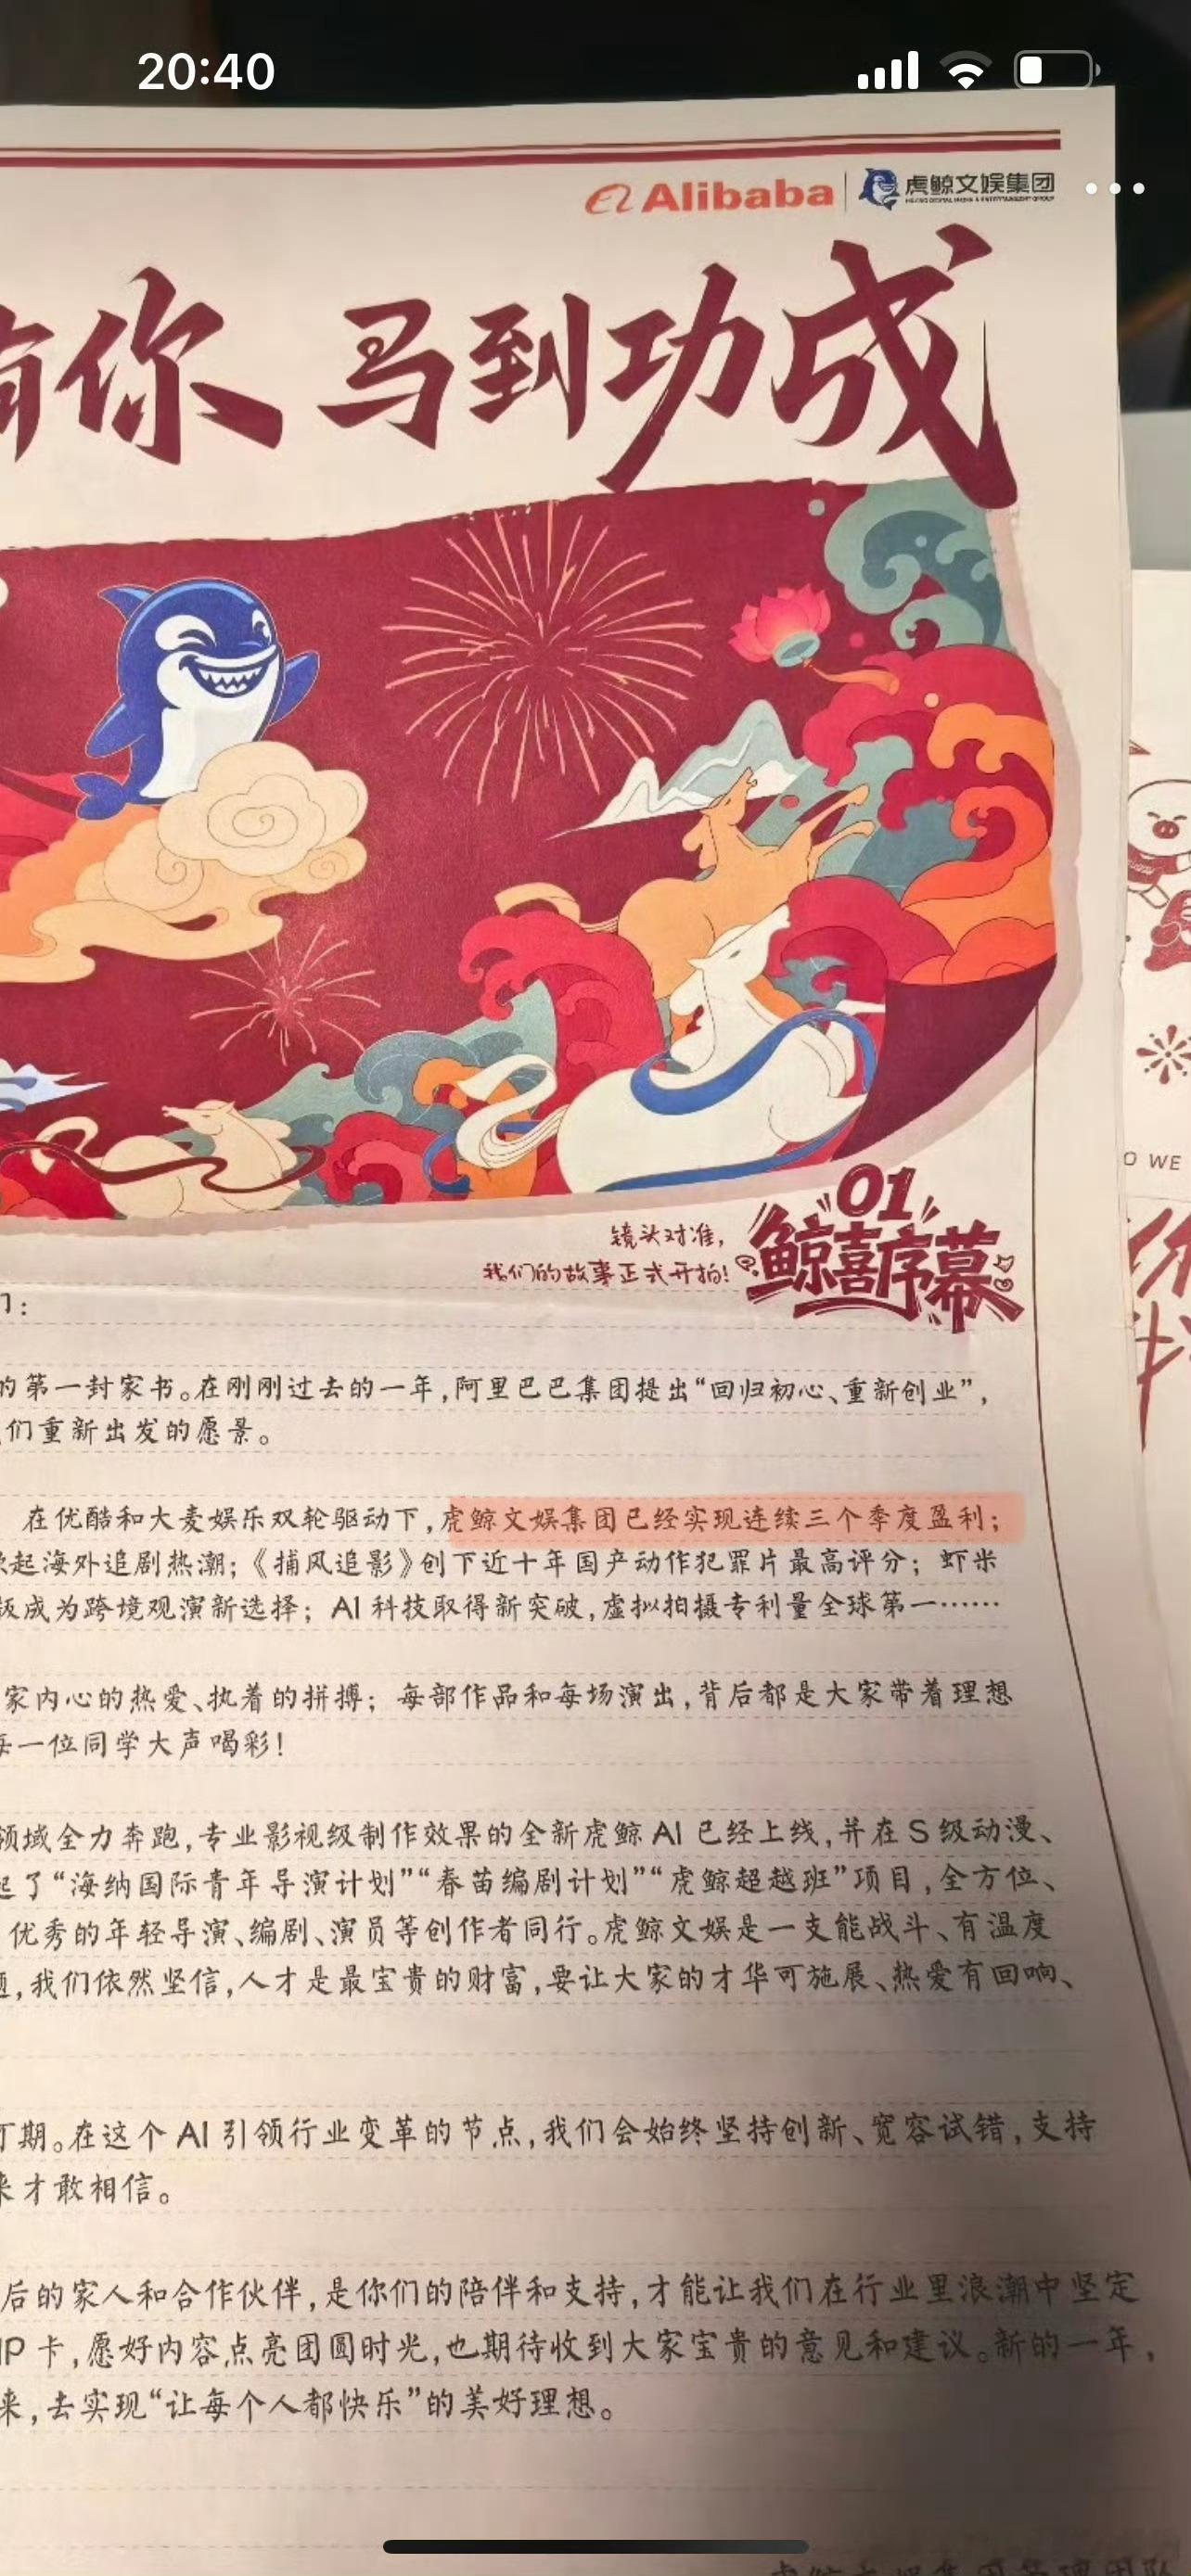 20:40
Alibaba 虎鲸文娱集团
有你 马到功成
O WE
01
镜头对准，
鲸喜序幕
我们的故事正式开拍！
们：
的第一封家书。在刚刚过去的一年，阿里巴巴集团提出“回归初心、重新创业”，
们重新出发的愿景。
在优酷和大麦娱乐双轮驱动下，虎鲸文娱集团已经实现连续三个季度盈利；
起海外追剧热潮；《捕风追影》创下近十年国产动作犯罪片最高评分；虾米
版成为跨境观演新选择；AI科技取得新突破，虚拟拍摄专利量全球第一……
家内心的热爱、执着的拼搏；每部作品和每场演出，背后都是大家带着理想
每一位同学大声喝彩！
领域全力奔跑，专业影视级制作效果的全新虎鲸AI已经上线，并在S级动漫、
起了“海纳国际青年导演计划”“春苗编剧计划”“虎鲸超越班”项目，全方位、
优秀的年轻导演、编剧、演员等创作者同行。虎鲸文娱是一支能战斗、有温度
，我们依然坚信，人才是最宝贵的财富，要让大家的才华可施展、热爱有回响、
可期。在这个AI引领行业变革的节点，我们会始终坚持创新、宽容试错，支持
来才敢相信。
后的家人和合作伙伴，是你们的陪伴和支持，才能让我们在行业里浪潮中坚定
IP卡，愿好内容点亮团圆时光，也期待收到大家宝贵的意见和建议。新的一年，
来，去实现“让每个人都快乐”的美好理想。